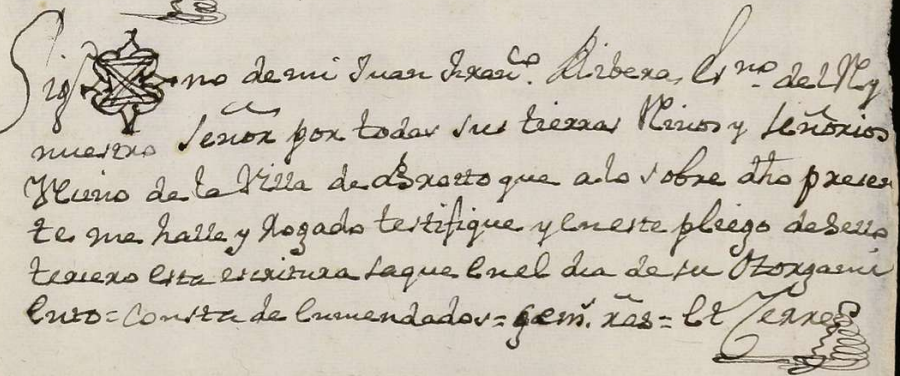 Sig no de mi Juan Franco. Ribera, Esno. del Rey
nuestro Señor por todas sus tierras Rinos y señorios
Vecino de la Villa de Broto que a lo sobre dho presen
te me halle y Rogado testifique y en este pliego de Sello
tercero esta escritura saque en el dia de su Otorgami
ento = Consta de enmendados = = et Cerre